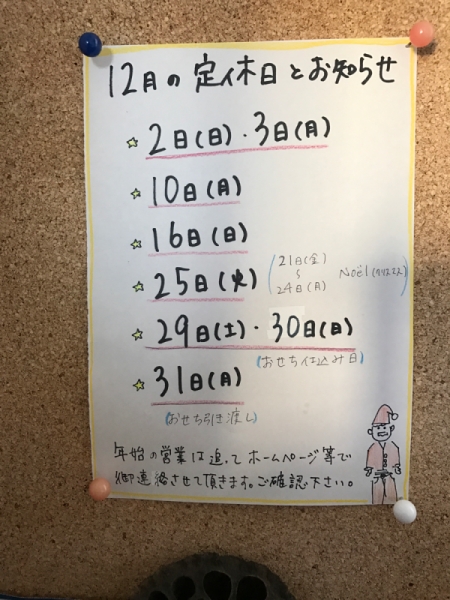 12月の定休日とお知らせ
☆ 2日(日)・3日(月)
☆ 10日(月)
☆ 16日(日)
☆ 25日(火) (21日(金) 〜 24日(月) Noël(クリスマス))
☆ 29日(土)・30日(日)
(おせち仕込み日)
☆ 31日(月)
(おせち引き渡し)
年始の営業は追ってホームページ等で
御連絡させて頂きます。ご確認下さい。